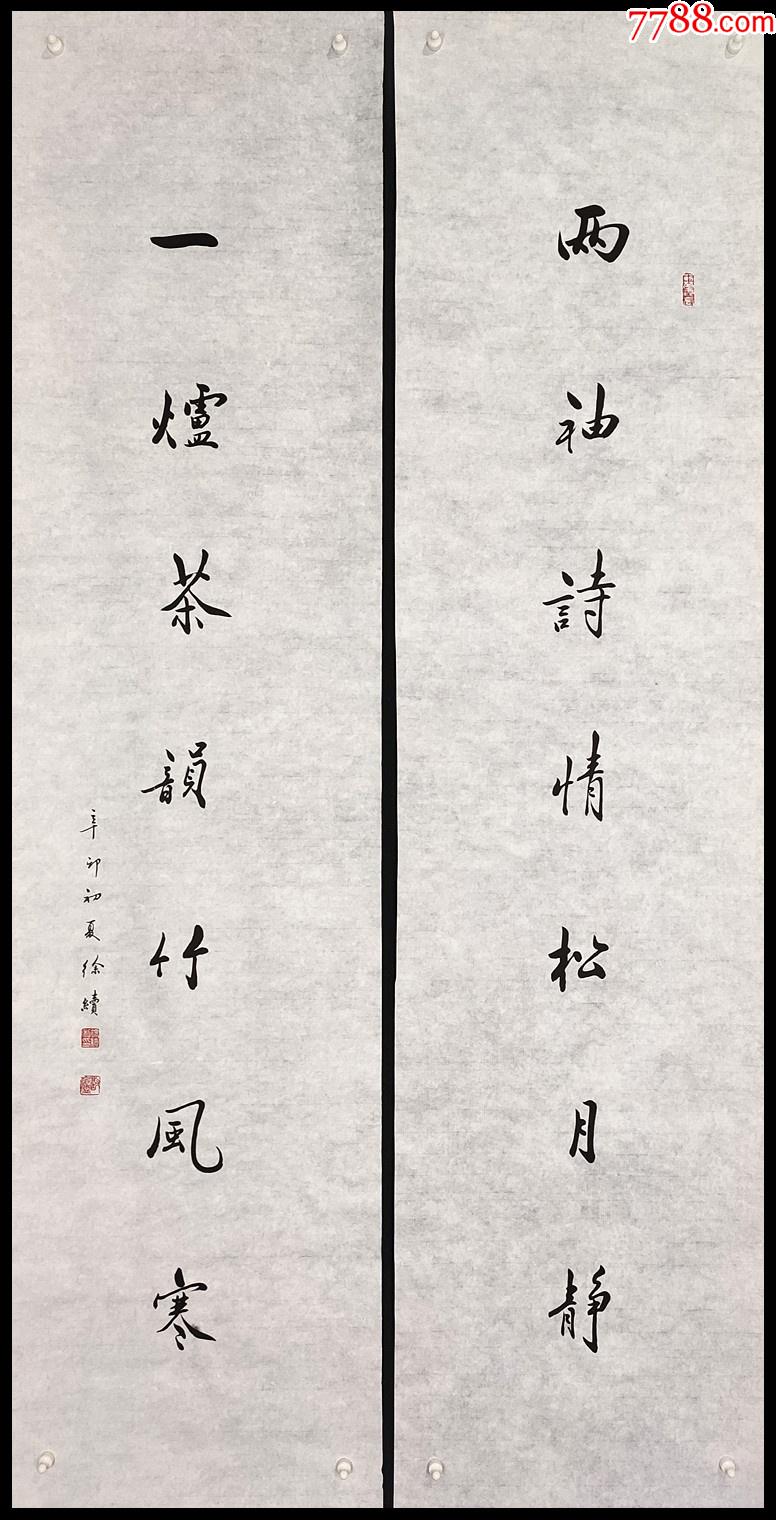 7788.com
两袖詩情松月静
一爐茶韻竹風寒
辛卯初夏徐續